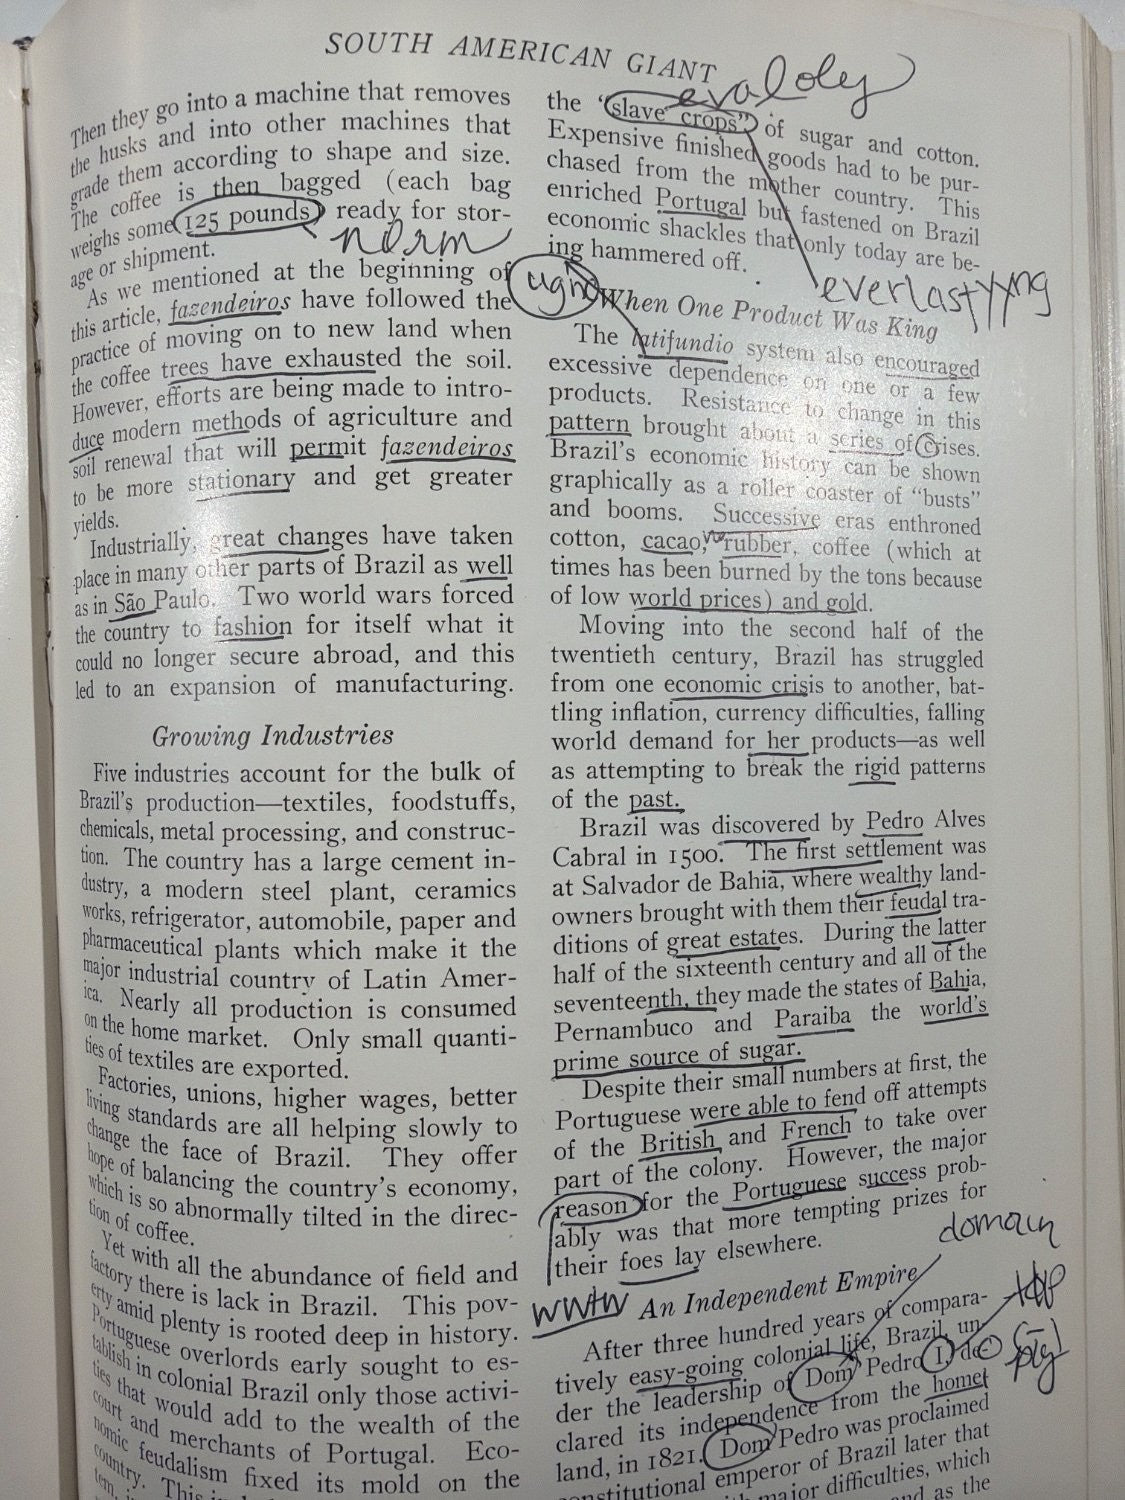 SOUTH AMERICAN GIANT
Then they go into a machine that removes
the husks and into other machines that
grade them according to shape and size.
The coffee is then bagged (each bag
weighs some 125 pounds) ready for stor-
norm
age or shipment.
As we mentioned at the beginning of
this article, fazendeiros have followed the
practice of moving on to new land when
the coffee trees have exhausted the soil.
However, efforts are being made to intro-
duce modern methods of agriculture and
soil renewal that will permit fazendeiros
to be more stationary and get greater
yields.
Industrially, great changes have taken
place in many other parts of Brazil as well
as in São Paulo. Two world wars forced
the country to fashion for itself what it
could no longer secure abroad, and this
led to an expansion of manufacturing.
Growing Industries
Five industries account for the bulk of
Brazil's production—textiles, foodstuffs,
chemicals, metal processing, and construc-
tion. The country has a large cement in-
dustry, a modern steel plant, ceramics
works, refrigerator, automobile, paper and
pharmaceutical plants which make it the
major industrial country of Latin Amer-
ica. Nearly all production is consumed
on the home market. Only small quanti-
ties of textiles are exported.
Factories, unions, higher wages, better
living standards are all helping slowly to
change the face of Brazil. They offer
hope of balancing the country's economy,
which is so abnormally tilted in the direc-
tion of coffee.
Yet with all the abundance of field and
factory there is lack in Brazil. This pov-
erty amid plenty is rooted deep in history.
Portuguese overlords early sought to es-
tablish in colonial Brazil only those activi-
ties that would add to the wealth of the
court and merchants of Portugal. Eco-
nomic feudalism fixed its mold on the
country. This
evaloley
the "slave crops" of sugar and cotton.
Expensive finished goods had to be pur-
chased from the mother country. This
enriched Portugal but fastened on Brazil
economic shackles that only today are be-
ing hammered off.
everlastyyng
When One Product Was King
The latifundio system also encouraged
excessive dependence on one or a few
products. Resistance to change in this
pattern brought about a series of crises.
Brazil's economic history can be shown
graphically as a roller coaster of "busts"
and booms. Successive eras enthroned
cotton, cacao, rubber, coffee (which at
times has been burned by the tons because
of low world prices) and gold.
Moving into the second half of the
twentieth century, Brazil has struggled
from one economic crisis to another, bat-
tling inflation, currency difficulties, falling
world demand for her products—as well
as attempting to break the rigid patterns
of the past.
Brazil was discovered by Pedro Alves
Cabral in 1500. The first settlement was
at Salvador de Bahia, where wealthy land-
owners brought with them their feudal tra-
ditions of great estates. During the latter
half of the sixteenth century and all of the
seventeenth, they made the states of Bahia,
Pernambuco and Paraiba the world's
prime source of sugar.
Despite their small numbers at first, the
Portuguese were able to fend off attempts
of the British and French to take over
part of the colony. However, the major
reason for the Portuguese success prob-
ably was that more tempting prizes for
their foes lay elsewhere.
domain
An Independent Empire
After three hundred years of compara-
tively easy-going colonial life, Brazil, un-
der the leadership of Dom Pedro I, de-
clared its independence from the home-
land, in 1821. Dom Pedro was proclaimed
constitutional emperor of Brazil later that
major difficulties, which
as the